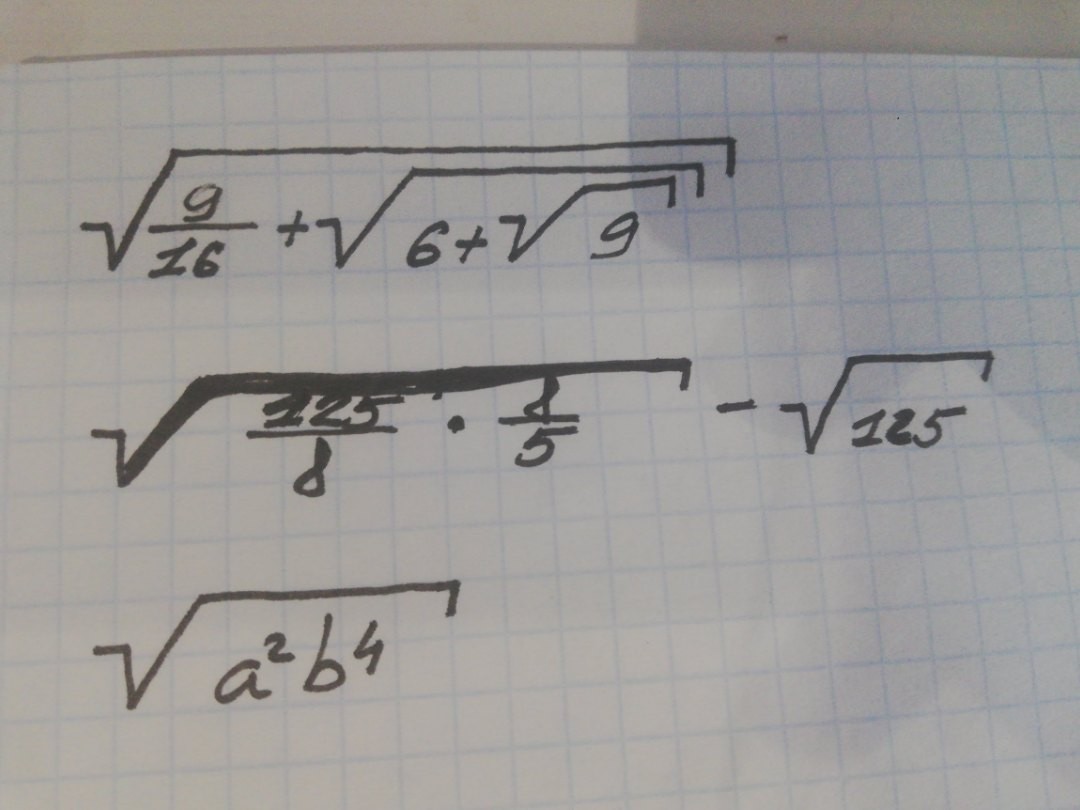 √(9/16 + √(6+√9))
√(125/8 · 8/5) - √125
√(a²b⁴)